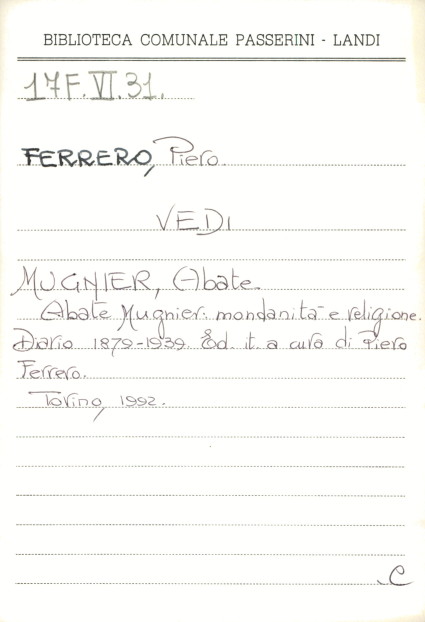 BIBLIOTECA COMUNALE PASSERINI - LANDI
17F.VI.31.
FERRERO, Piero.
VEDI
MUGNIER, Abate.
Abate Mugnier: mondanità e religione.
Diario 1879-1939. Ed. it. a cura di Piero
Ferrero.
Torino, 1992.
C